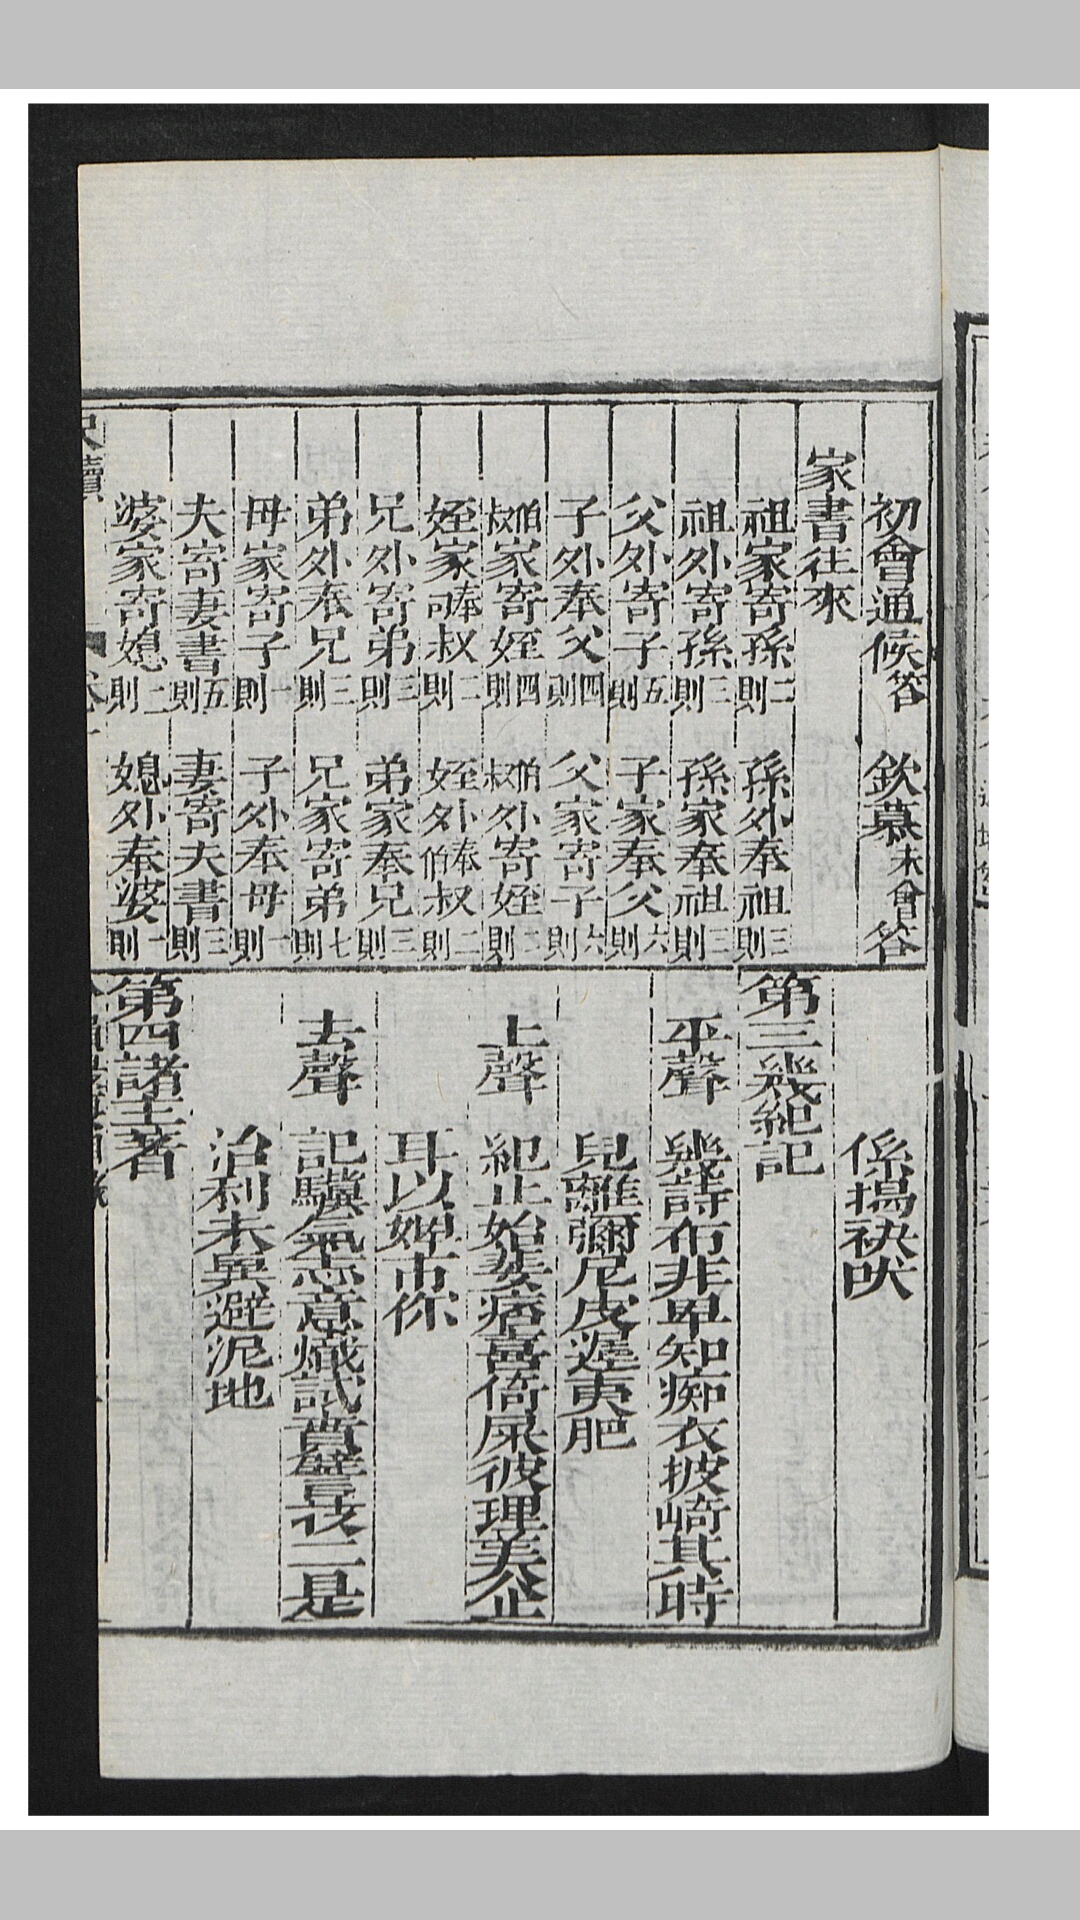 初會通候答　欽慕未會答
家書往來
祖家寄孫二則　孫外奉祖三則
祖外寄孫三則　孫家奉祖三則
父外寄子五則　子家奉父六則
子外奉父四則　父家寄子六則
伯叔家寄姪四則　伯叔外寄姪二則
姪家奉叔二則　姪外奉伯叔二則
兄外寄弟三則　弟家奉兄三則
弟外奉兄三則　兄家寄弟七則
母家寄子一則　子外奉母一則
夫寄妻書五則　妻寄夫書三則
婆家寄媳二則　媳外奉婆一則
尺牘
係搗袂吠
第三幾紀記
平聲　幾詩布非卑知痴衣披崎其時
兒離彌尼皮遲夷肥
上聲　紀止始婓痞喜倚屎彼理美企
耳以婢市你
去聲　記驥氣志意熾試費譬技二是
治利未異避泥地
第四諸主著